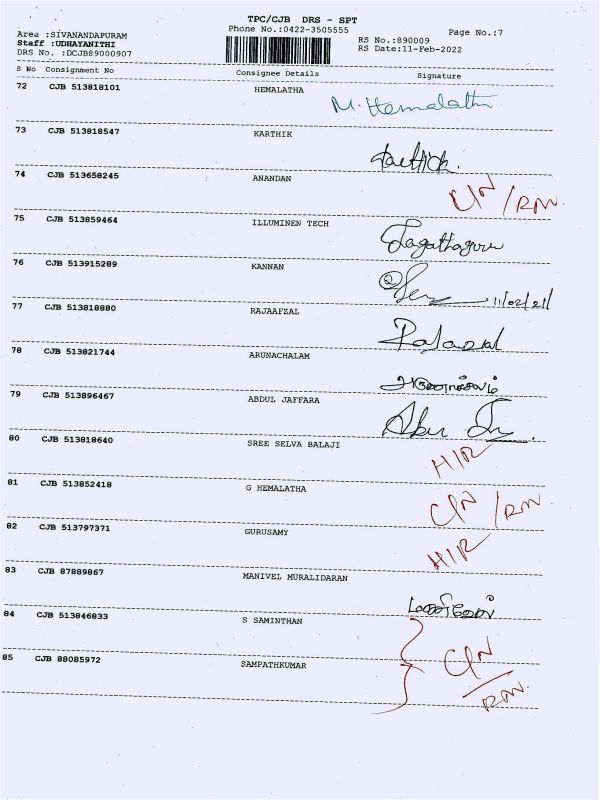 TPC/CJB DRS - SPT
Area :SIVANANDAPURAM Phone No.:0422-3505555 Page No.:7
Staff :UDHAYANITHI RS No.:890009
DRS No. :DCJB89000907 RS Date:11-Feb-2022
S No Consignment No Consignee Details Signature
72 CJB 513818101 HEMALATHA M. Hemalatha
73 CJB 513818547 KARTHIK Karthick.
74 CJB 513658245 ANANDAN C/N / RM.
75 CJB 513859464 ILLUMINEN TECH Jagathaguru
76 CJB 513915289 KANNAN 11/02/21/
77 CJB 513818880 RAJAAFZAL
78 CJB 513821744 ARUNACHALAM அருணாசலம்
79 CJB 513896467 ABDUL JAFFARA
80 CJB 513818640 SREE SELVA BALAJI H/R
81 CJB 513852418 G HEMALATHA C/N / RM
82 CJB 513797371 GURUSAMY H/R
83 CJB 87889867 MANIVEL MURALIDARAN மணிவேல்
84 CJB 513846833 S SAMINTHAN C/N
85 CJB 88085972 SAMPATHKUMAR RM.